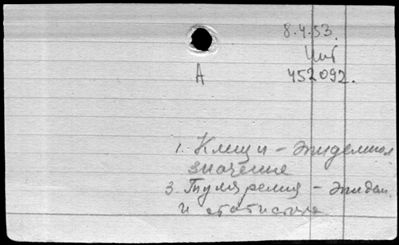 8.4.53.
А
452092.
1. Клещи - эпидемиол
значение
3. Туляремия - эпидем.
и статистика